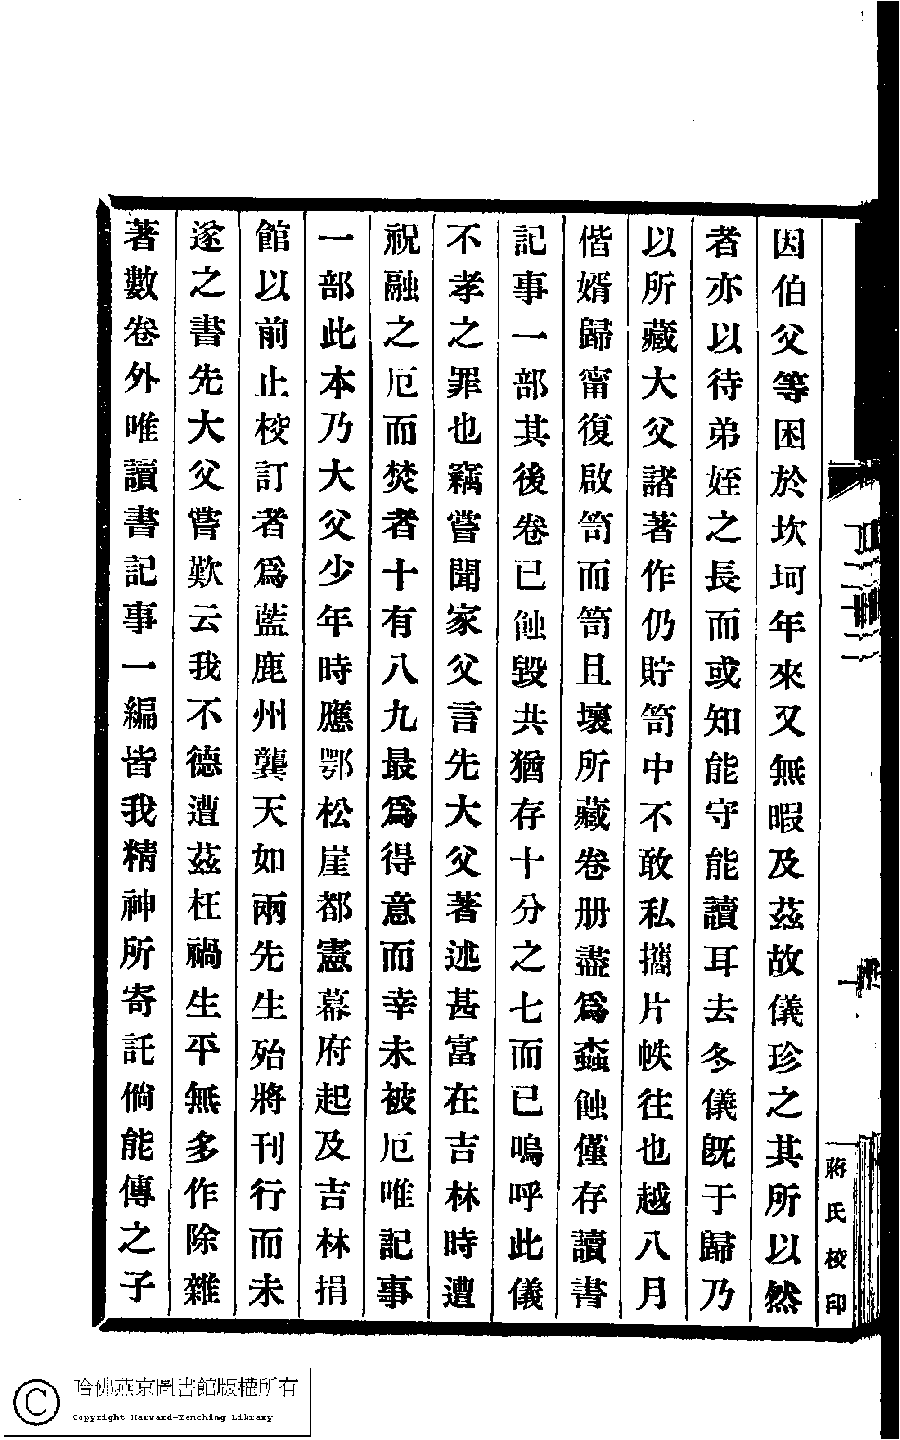 因伯父等困於坎坷年來又無暇及茲故儀珍之其所以然
者亦以待弟姪之長而或知能守能讀耳去冬儀旣于歸乃
以所藏大父諸著作仍貯笥中不敢私攜片帙往也越八月
偕婿歸甯復啟笥而笥且壞所藏卷册盡爲螙蝕僅存讀書
記事一部其後卷已蝕毀共猶存十分之七而已嗚呼此儀
不孝之罪也竊嘗聞家父言先大父著述甚富在吉林時遭
祝融之厄而焚者十有八九最爲得意而幸未被厄唯記事
一部此本乃大父少年時應鄂松崖都憲幕府起及吉林捐
館以前止校訂者爲藍鹿州龔天如兩先生殆將刊行而未
遂之書先大父嘗歎云我不德遭茲枉禍生平無多作除雜
著數卷外唯讀書記事一編皆我精神所寄託倘能傳之子
蔣氏校印
哈佛燕京圖書館版權所有
Copyright Harvard-Yenching Library